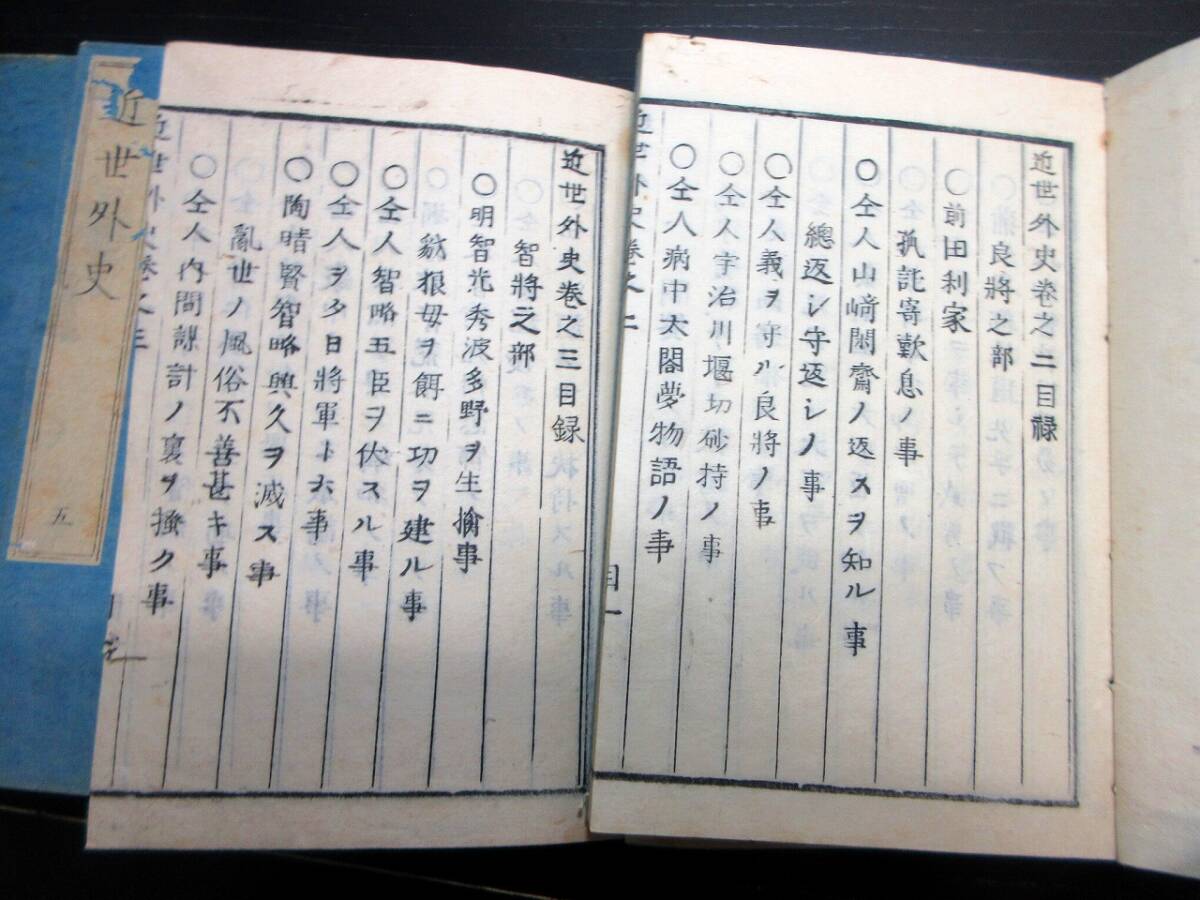 近世外史卷之二目禄
良將之部
〇前田利家
孤託寄歎息ノ事
〇仝人山﨑闇齋ノ返スヲ知ル事
總返シ守返シノ事
〇仝人義ヲ守ル良將ノ事
〇仝人宇治川堰切砂持ノ事
〇仝人病中太閤夢物語ノ事
近世外史卷之二
目一
近世外史卷之三目録
智將之部
〇明智光秀波多野ヲ生擒事
豺狼母ヲ餌ニ功ヲ建ル事
〇仝人智略五臣ヲ伏スル事
〇仝人ヲ夕日將軍ト云事
〇陶晴賢智略興久ヲ滅ス事
亂世ノ風俗不善甚キ事
〇仝人内間謀計ノ裏ヲ搔ク事
近世外史卷之三
近世外史
五